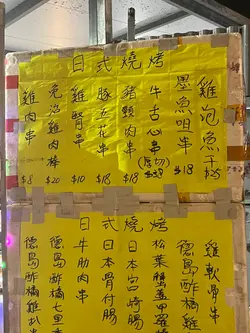 日式燒烤
雞泡魚干 $25
墨魚咀串 $18
牛舌心串 (厚切) $38
豬頸肉串 $18
豚五花串 $18
雞腎串 $10
免治雞肉棒 $20
雞肉串 $8
日式燒烤
雞軟骨串
德島酢橘雞
松葉蟹蓋甲羅
日本宮崎腸
日本骨付腸
日牛肋肉串
德島酢橘七里
德島酢橘雞扒串